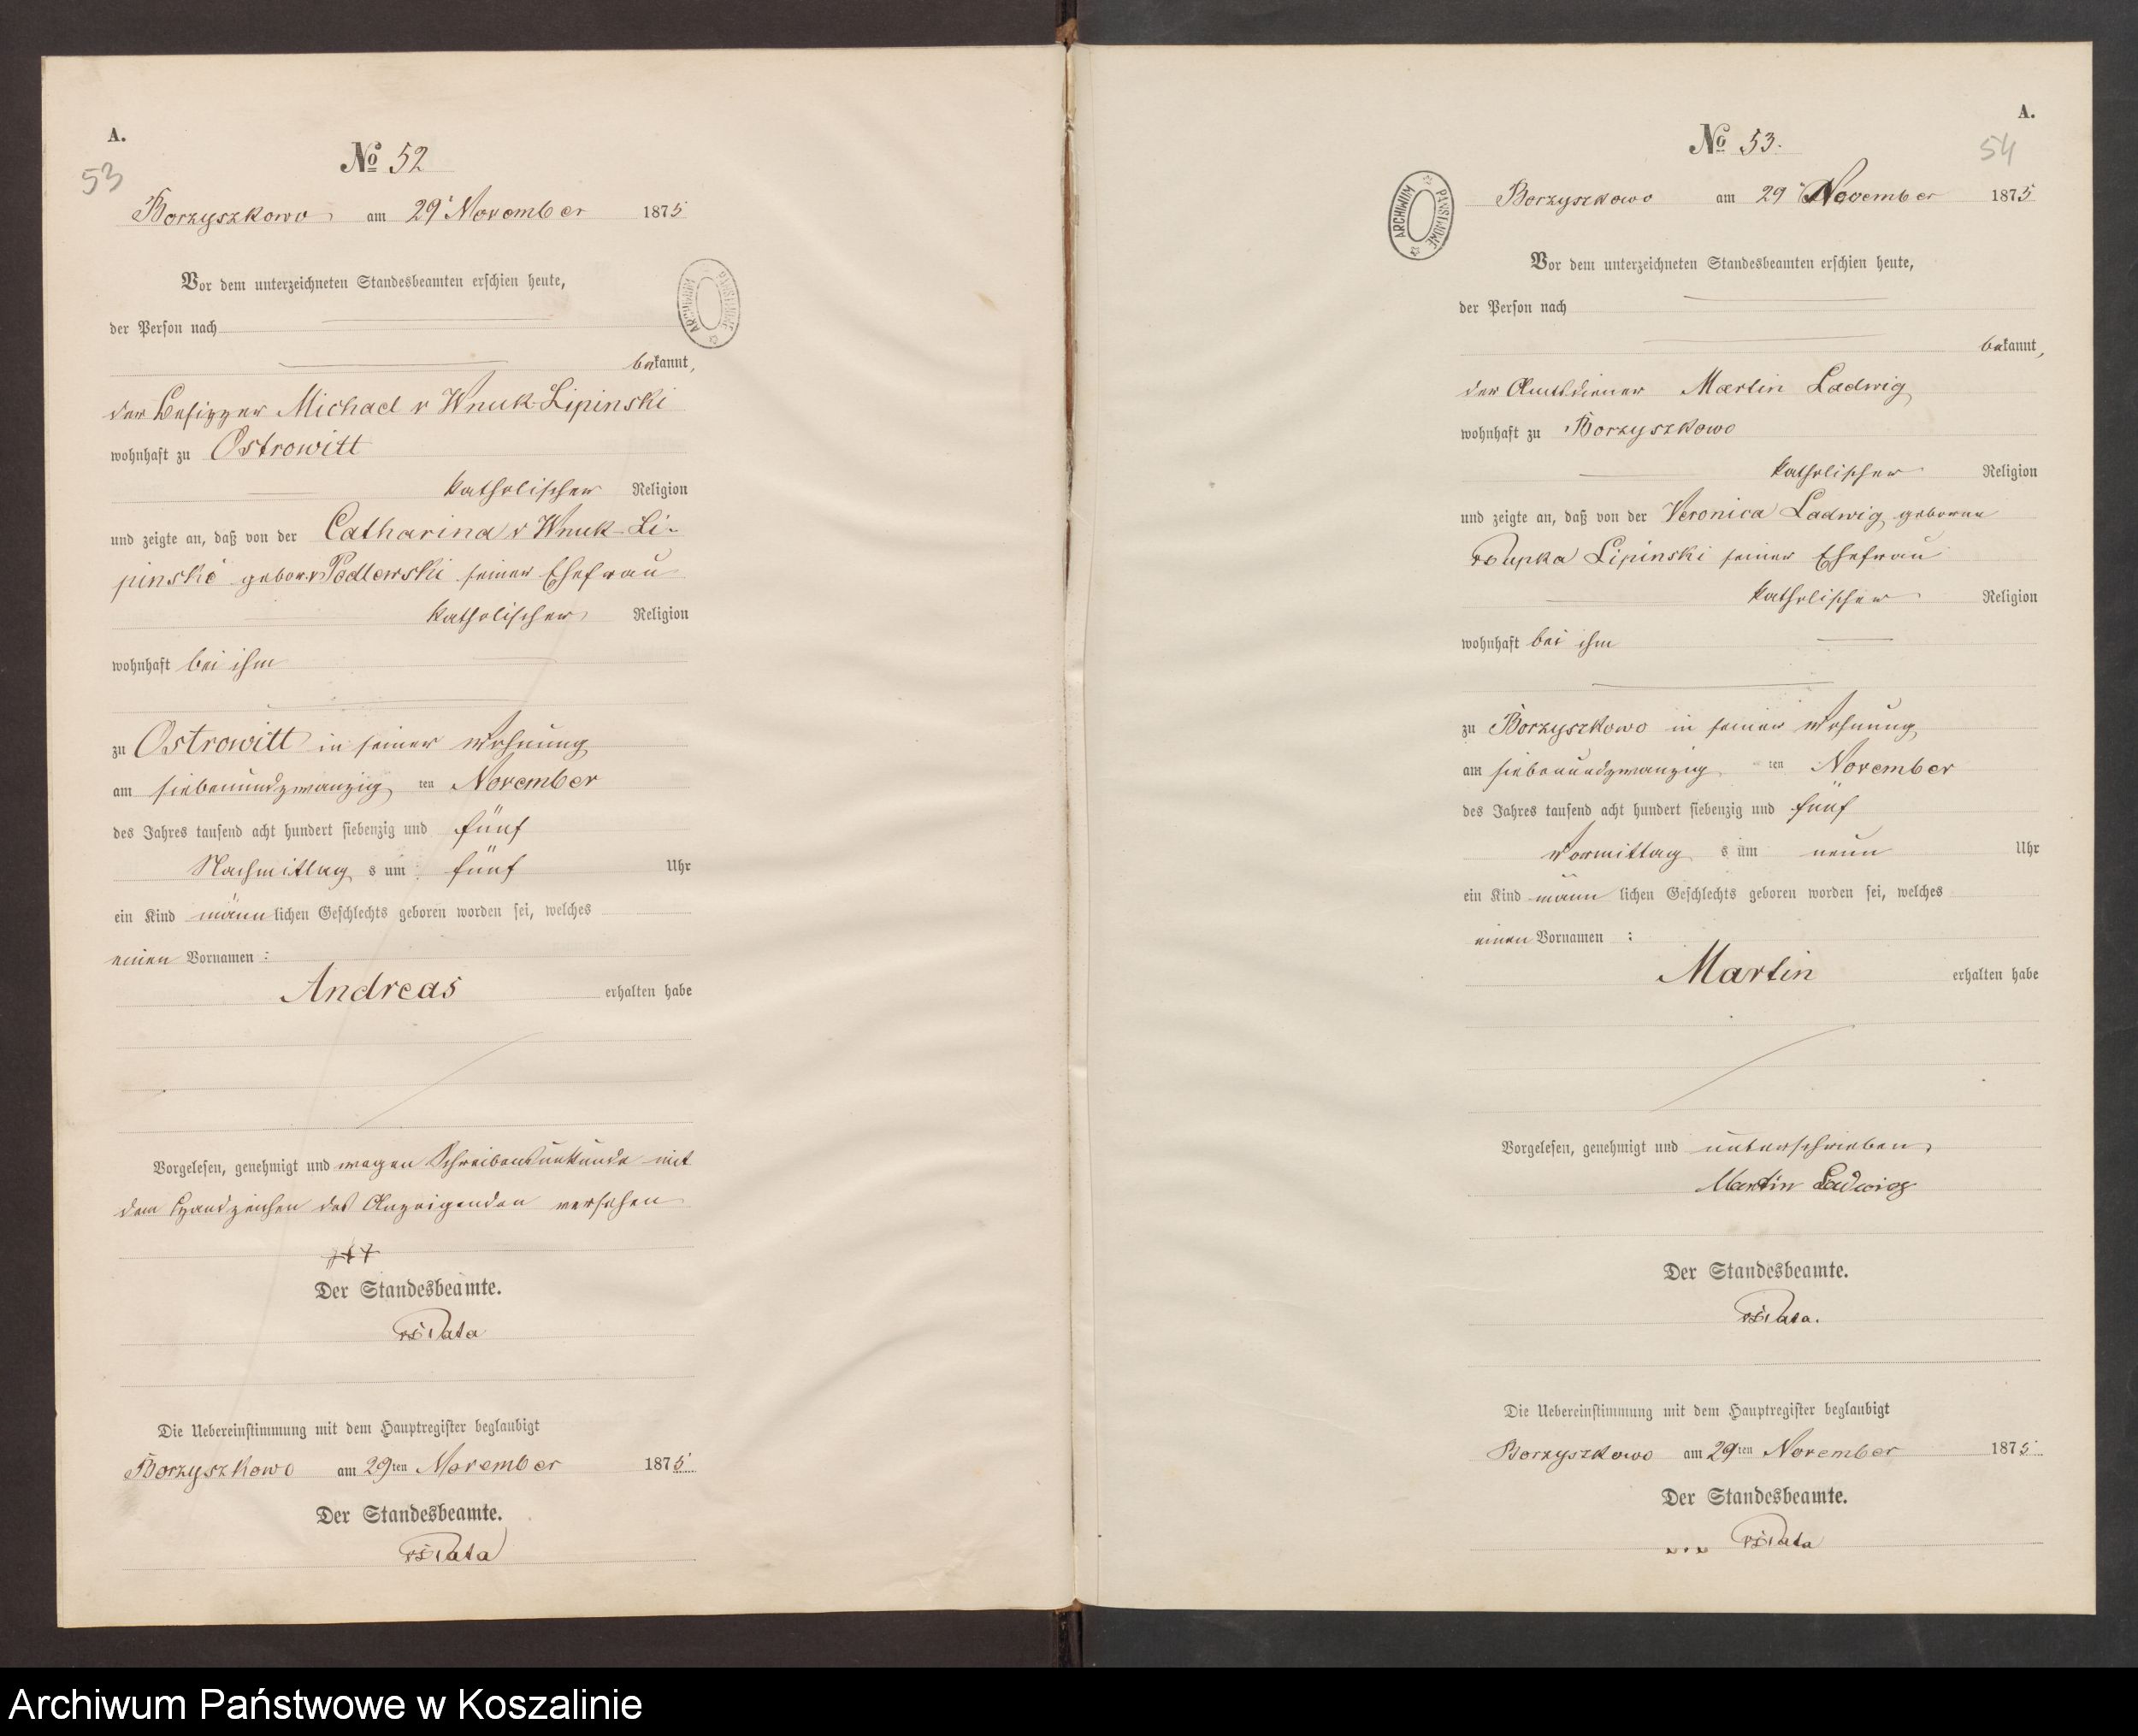 A.
53
No 52
Borzyszkowo am 29. November 1875
Vor dem unterzeichneten Standesbeamten erschien heute,
der Person nach
bekannt,
der Besitzer Michael v Wnuk-Lipinski
wohnhaft zu Ostrowitt
katholischer Religion
und zeigte an, daß von der Catharina v Wnuk-Li-
pinski gebor. v Podlewski seiner Ehefrau
katholischer Religion
wohnhaft bei ihm
zu Ostrowitt in seiner Wohnung
am siebenundzwanzig ten November
des Jahres tausend acht hundert siebenzig und fünf
Nachmittag s um fünf Uhr
ein Kind männlichen Geschlechts geboren worden sei, welches
einen Vornamen :
Andreas erhalten habe
Vorgelesen, genehmigt und wegen Schreibensunkunde mit
dem Handzeichen des Anzeigenden versehen
+++
Der Standesbeamte.
Die Uebereinstimmung mit dem Hauptregister beglaubigt
Borzyszkowo am 29ten November 1875
Der Standesbeamte.
A.
54
No 53.
ARCHIWUM PAŃSTWOWE
Borzyszkowo am 29. November 1875
Vor dem unterzeichneten Standesbeamten erschien heute,
der Person nach
bekannt,
der Amtsdiener Martin Ladwig
wohnhaft zu Borzyszkowo
katholischer Religion
und zeigte an, daß von der Veronica Ladwig geborene
Lipinski seiner Ehefrau
katholischer Religion
wohnhaft bei ihm
zu Borzyszkowo in seiner Wohnung
am siebenundzwanzig ten November
des Jahres tausend acht hundert siebenzig und fünf
Vormittag s um neun Uhr
ein Kind männlichen Geschlechts geboren worden sei, welches
einen Vornamen :
Martin erhalten habe
Vorgelesen, genehmigt und unterschrieben,
Martin Ladwig
Der Standesbeamte.
Die Uebereinstimmung mit dem Hauptregister beglaubigt
Borzyszkowo am 29ten November 1875
Der Standesbeamte.
Archiwum Państwowe w Koszalinie